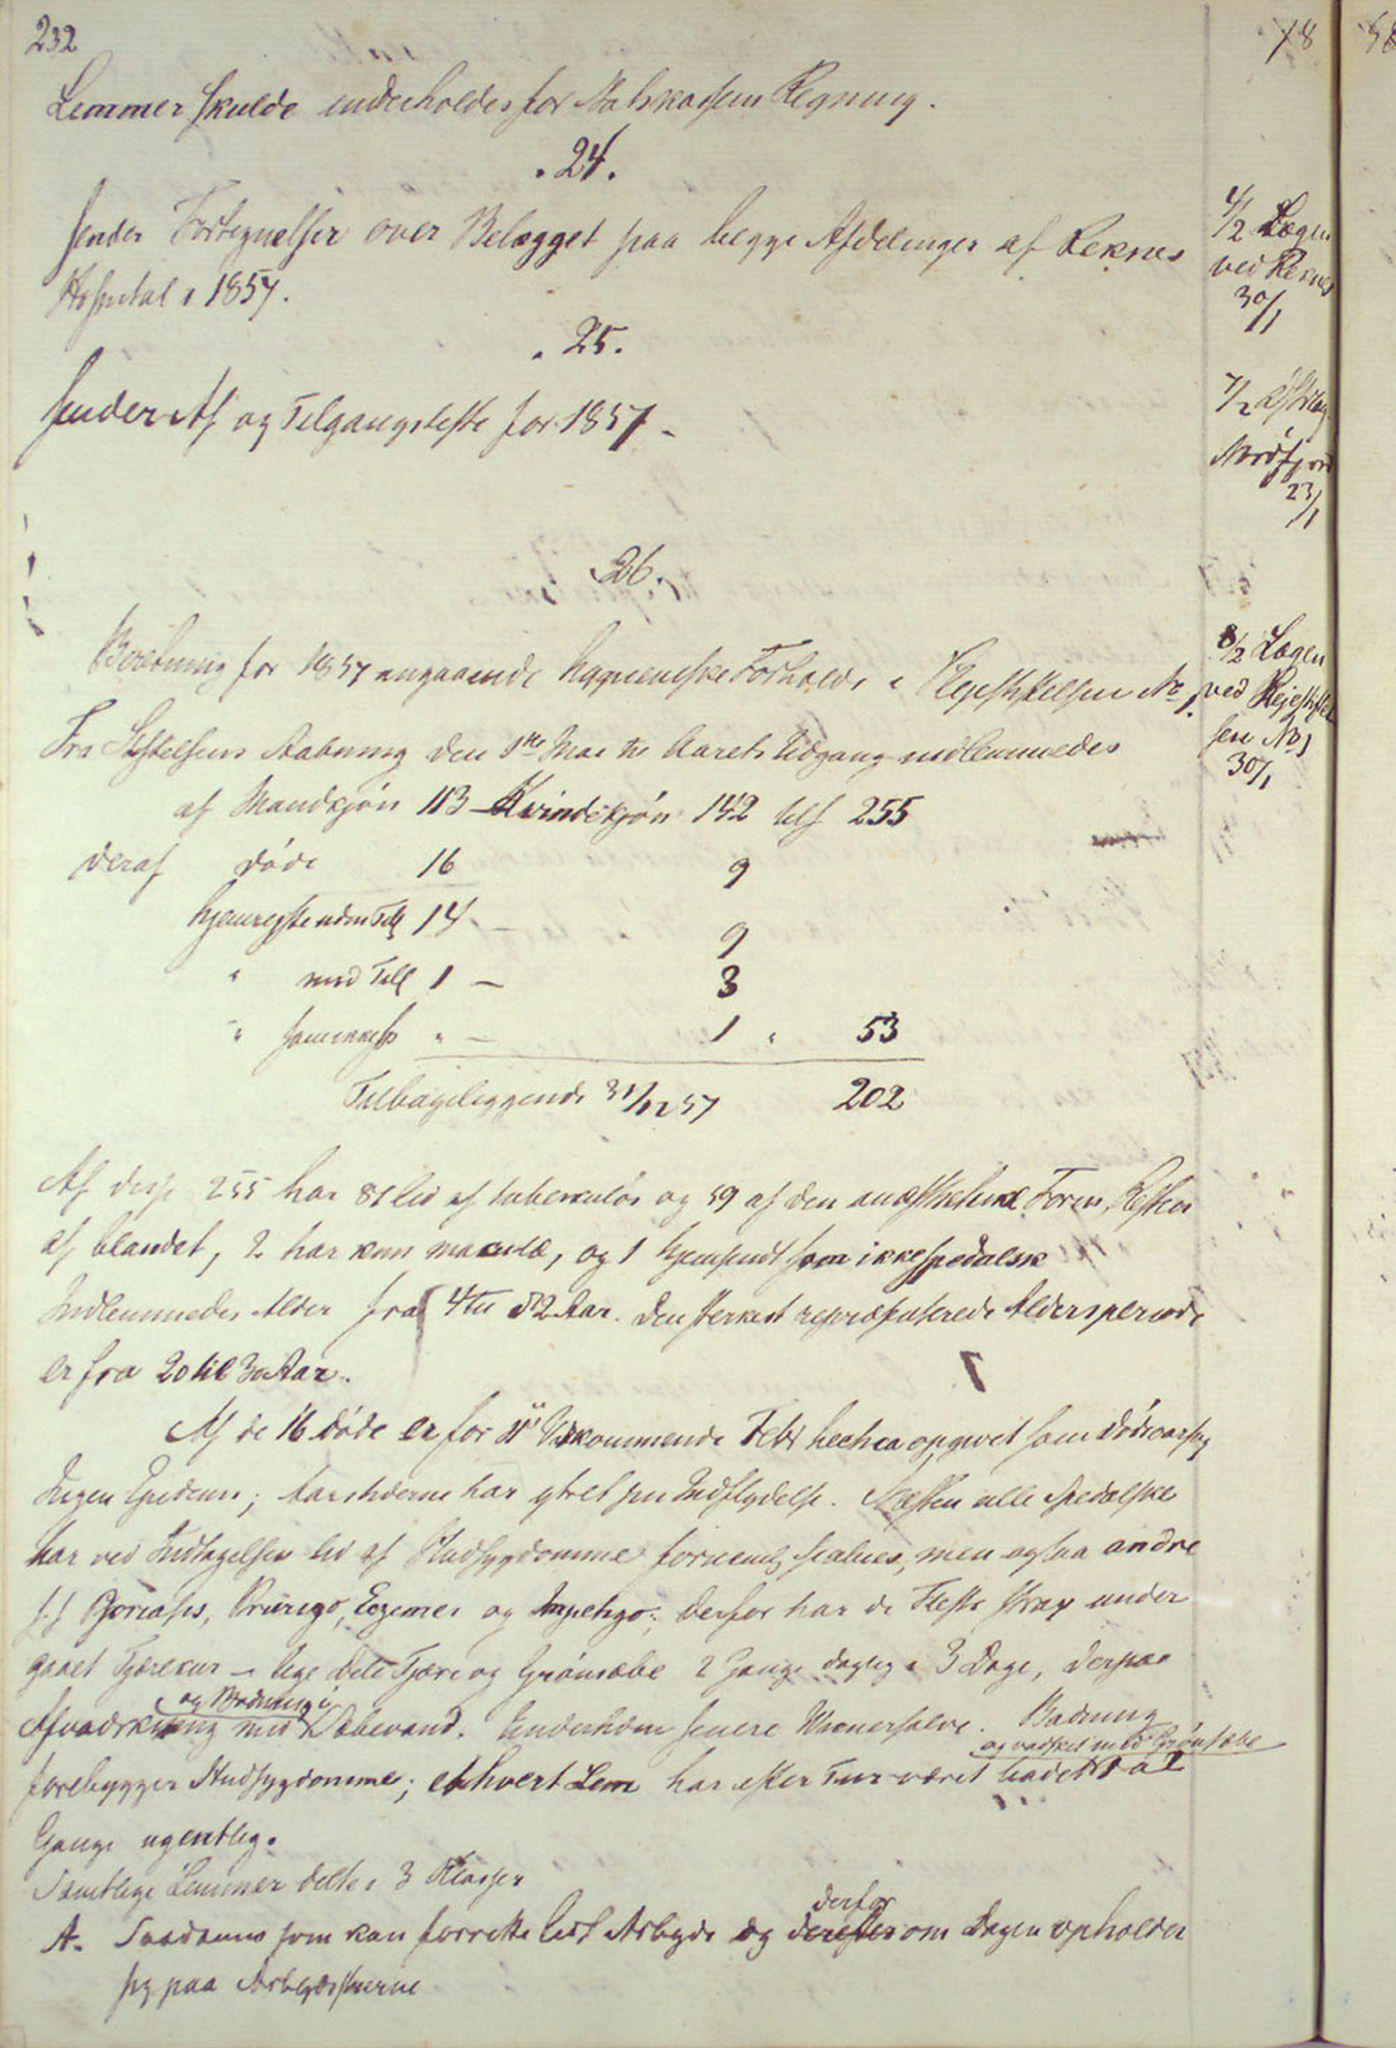 232
18
Lemmer skulde underholdes for Statskassens Regning.
.24.
Sender Fortegnelser over Belægget paa begge Afdelinger af Reknes
Hospital i 1857.
4/2 Lægen
ved Reknes
30/1
.25.
Sender Af og Tilgangsliste for 1857
7/2 distrlæg
Nordfjord
23/1
26.
Beretning for 1857 angaaende hygieniske Forholde i Plejestiftelsen No 1.
8/2 Lægen
ved Plejestiftel
sen No 1
30/1
Fra Stiftelsens Aabning den 1ste Mai til Aarets Udgang indlemmedes
af Mandkjøn 113 Kvindekjøn 142 tils 255
deraf døde 16 9
hjemrejste uden Till 14 - 9
" med Till 1 - 3
" som ikke sp " - 1 " 53
Tilbageliggende 31/12 57 202
Af disse 255 har 81 lid af tuberkuløs og 59 af den anæsthetiske Form, Resten
af blandet, 2 har kun maculæ, og 1 hjemsendt som ikke spedalsk
Indlemmedes Alder fra 4 til 82 Aar. Den sterkest repræsenterede Aldersperiode
er fra 20 til 30 Aar.
Af de 16 døde er for 11 Vedkommende Febr hectica opgivet som Dødsaarsag
Ingen Epidemi; Aarstiderne har ytret sin Indflydelse. Næsten alle Spedalske
har ved Indtagelsen lid af Hudsygdomme fornemlig scabies, men ogsaa andre
s.s Psoriasis, Prurigo, Eczemer og Impetigo; derfor har de Fleste strax under
gaaet Tjærekur - lige Dele Tjære og Grønsæbe 2 Gange daglig i 3 Dage, derpaa
og Badning i
Afvadskning med Sæbevand. Underhaanden senere Wienersalve. Badning
og vasket med Grønsæbe
forebygger Hudsygdomme; ethvert Lem har efter Tur været badet 1 a 2
Gange ugentlig.
Samtlige Lemmer deltes i 3 Klasser
derfor
A. Saadanne som kan forrette lidt Arbejde og derefter om Dagen opholder
sig paa Arbejdsstuerne